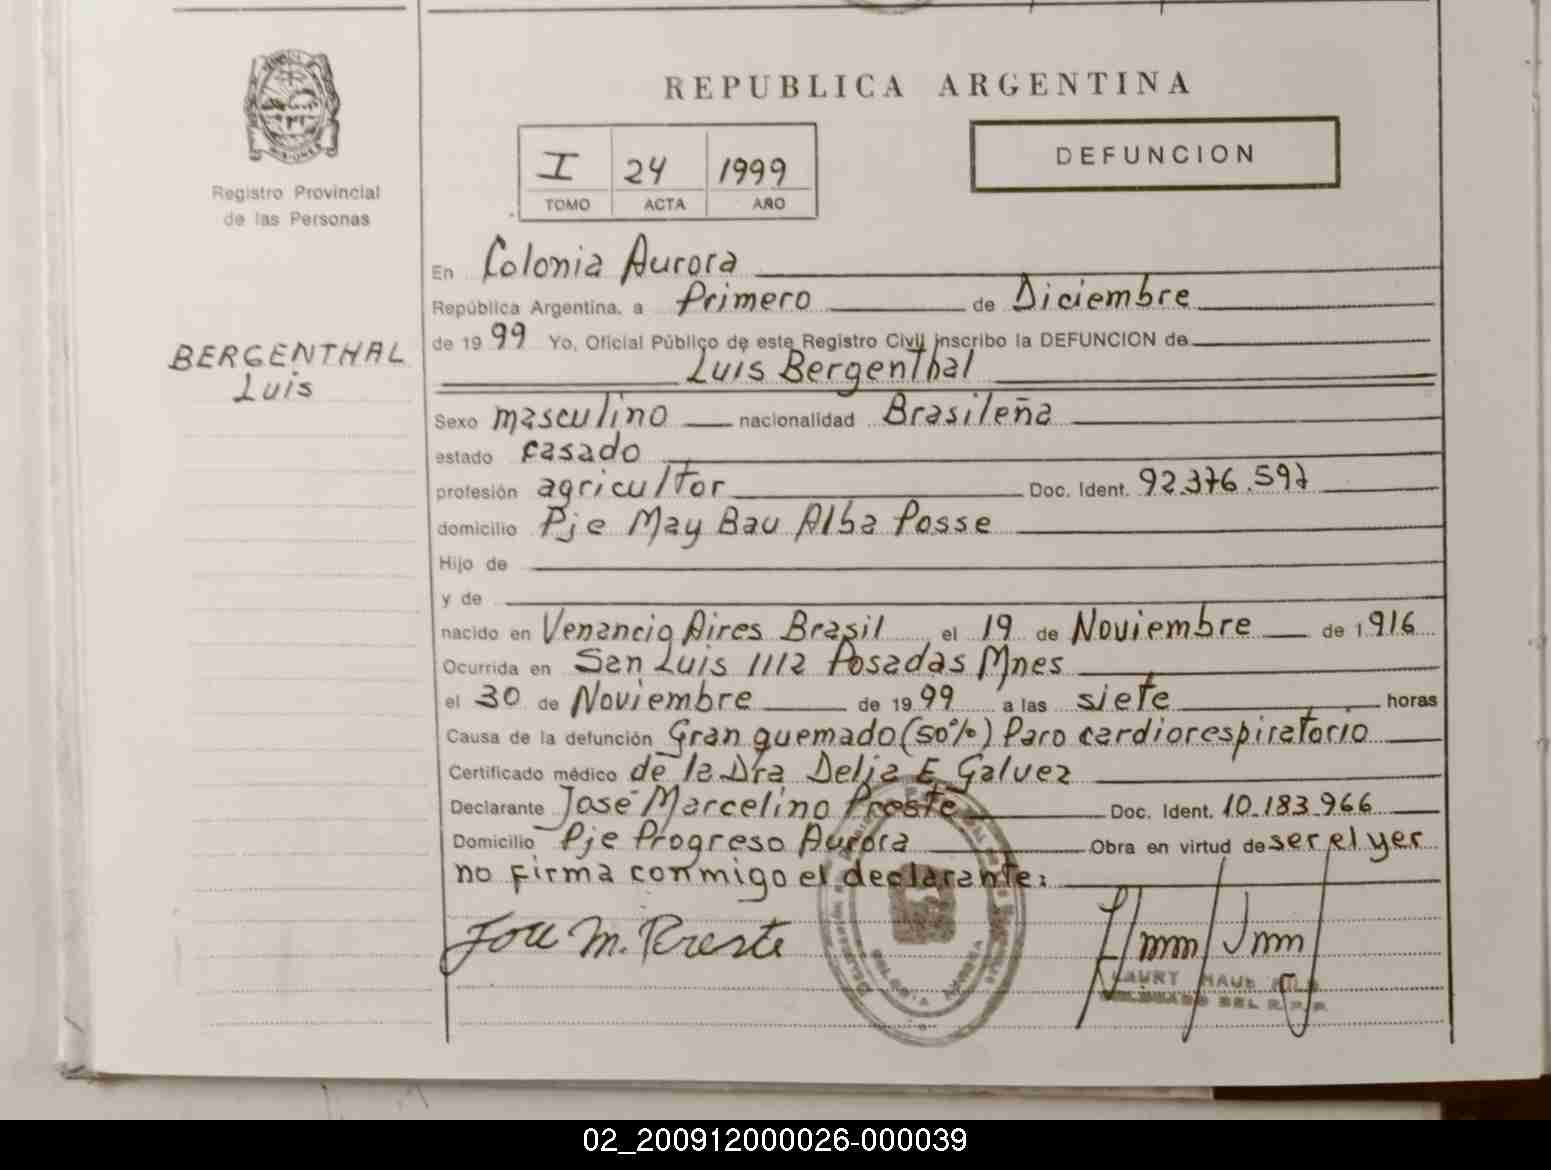 REPUBLICA ARGENTINA
DEFUNCION
I 24 1999
TOMO ACTA AÑO
MISIONES
Registro Provincial
de las Personas
BERGENTHAL
Luis
En Colonia Aurora
República Argentina, a Primero de Diciembre
de 19 99 Yo, Oficial Público de este Registro Civil inscribo la DEFUNCION de
Luis Bergenthal
Sexo masculino nacionalidad Brasileña
estado casado
profesión agricultor Doc. Ident. 92.376.597
domicilio Pje May Bau Alba Posse
Hijo de
y de
nacido en Venancio Aires Brasil el 19 de Noviembre de 1916
Ocurrida en San Luis 1112 Posadas Mnes
el 30 de Noviembre de 19 99 a las siete horas
Causa de la defunción Gran quemado (50%) Paro cardiorespiratorio
Certificado médico de la Dra Delia E. Galvez
Declarante José Marcelino Preste Doc. Ident. 10.183.966
Domicilio Pje Progreso Aurora Obra en virtud de ser el yer
no firma conmigo el declarante:
José M. Preste
DEL R.P.P.
02_200912000026-000039